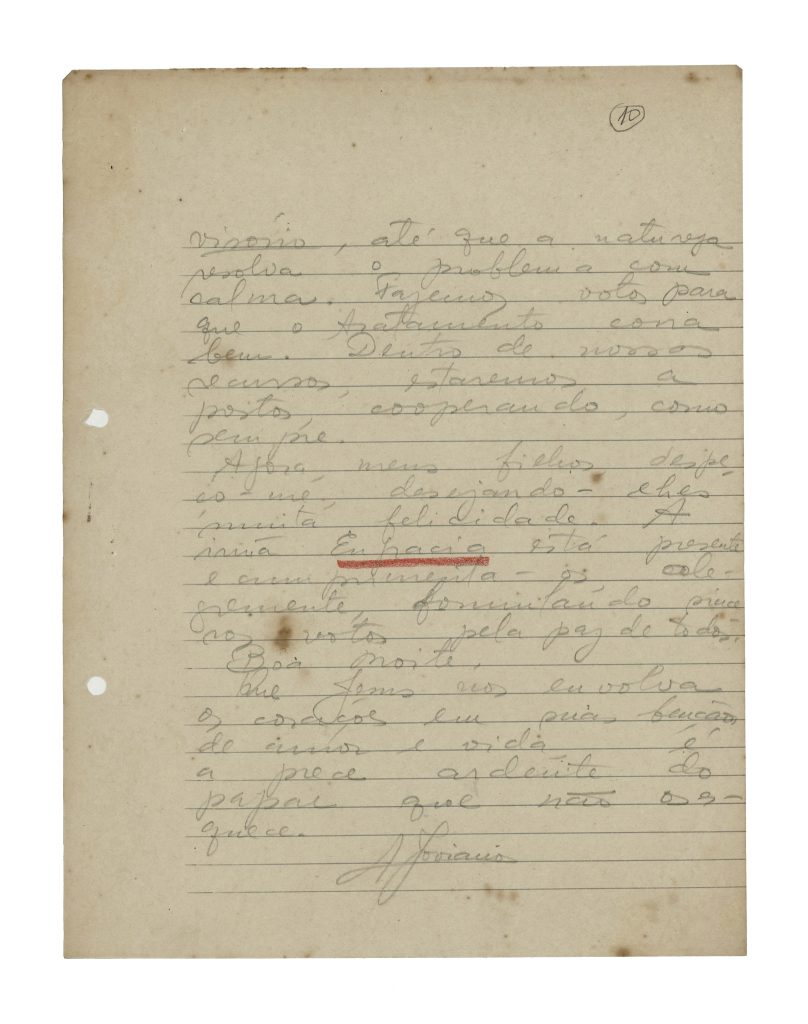 10
visório, até que a natureza
resolva o problema com
calma. Fazemos votos para
que o tratamento corra
bem. Dentro de nossos
recursos, estaremos a
postos, cooperando, como
sempre.
Agora meus filhos despe-
ço-me, desejando-lhes
muita felicidade. A
irmã Engracia está presente
e cumprimenta-os, ale-
gremente, formulando since
ros votos pela paz de todos.
Boa noite.
Que Jesus nos envolva
os corações em suas bençãos
de amor e vida é
a prece ardente do
papai que não os es-
quece.
A Joviano